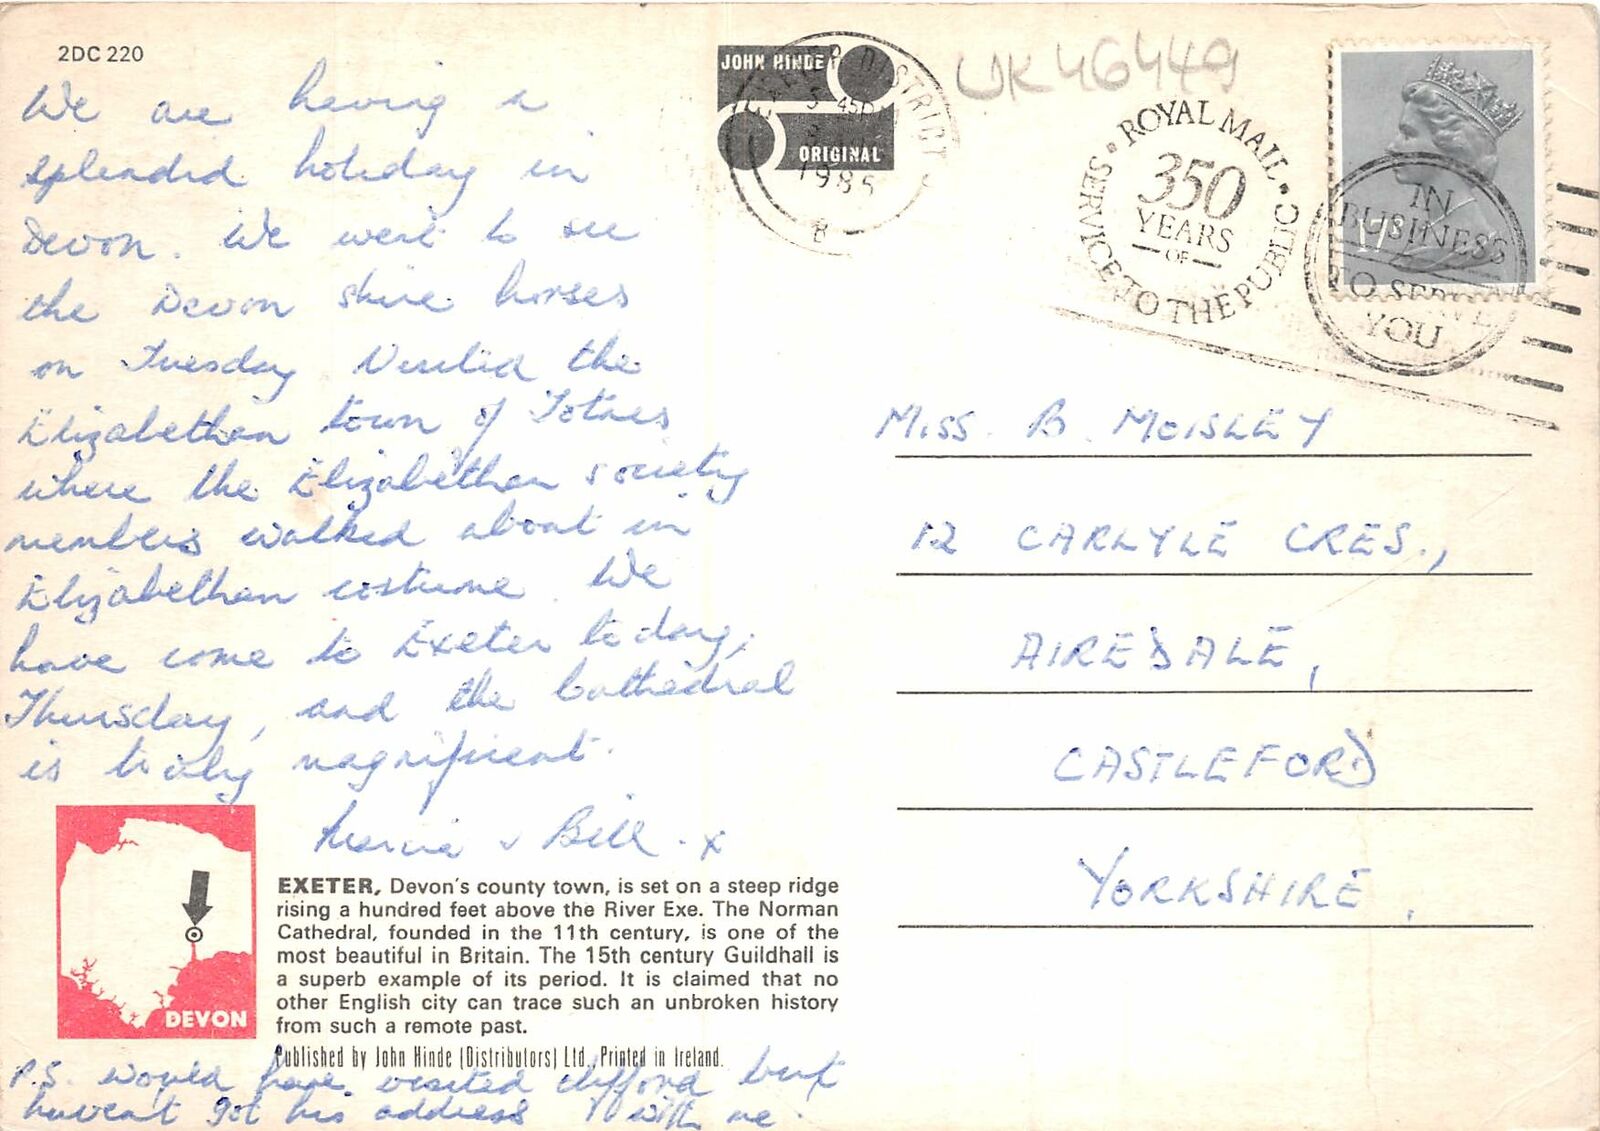 2DC 220
We are having a
splendid holiday in
Devon. We went to see
the Devon shire horses
on Tuesday Visited the
Elizabethan town of Totnes
where the Elizabethan society
members walked about in
Elizabethan costume. We
have come to Exeter today,
Thursday, and the Cathedral
is truly magnificent.
& Bill. x
EXETER, Devon's county town, is set on a steep ridge
rising a hundred feet above the River Exe. The Norman
Cathedral, founded in the 11th century, is one of the
most beautiful in Britain. The 15th century Guildhall is
a superb example of its period. It is claimed that no
other English city can trace such an unbroken history
from such a remote past.
DEVON
Published by John Hinde (Distributors) Ltd., Printed in Ireland.
P.S. would have visited Clifford but
haven't got his address with me.
JOHN HINDE
ORIGINAL
EXETER DISTRICT
1985
UK46449
ROYAL MAIL
350
YEARS
OF
SERVICE TO THE PUBLIC
17
IN
BUSINESS
TO SERVE
YOU
MISS. B. MOISLEY
12 CARLYLE CRES.,
AIREDALE,
CASTLEFORD
YORKSHIRE.